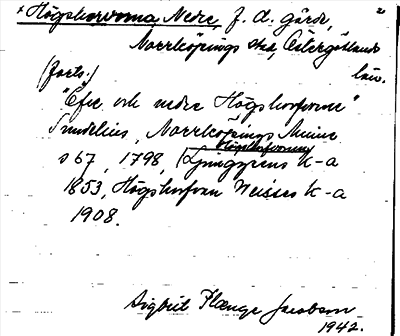 x Högskorvorna Nedre, f. d. gärde, 2
Norrköpings stad, Östergötlands
län.
(forts.)
"Öfre och nedre Högskorfvorne"
Sundelius, Norrköpings Minne
s 67, 1798, Högskorfvorne
Ljunggrens K-a
1853, Högskorfvan Neisers K-a
1908.
Sigbrit Plænge Jacobson
1942.